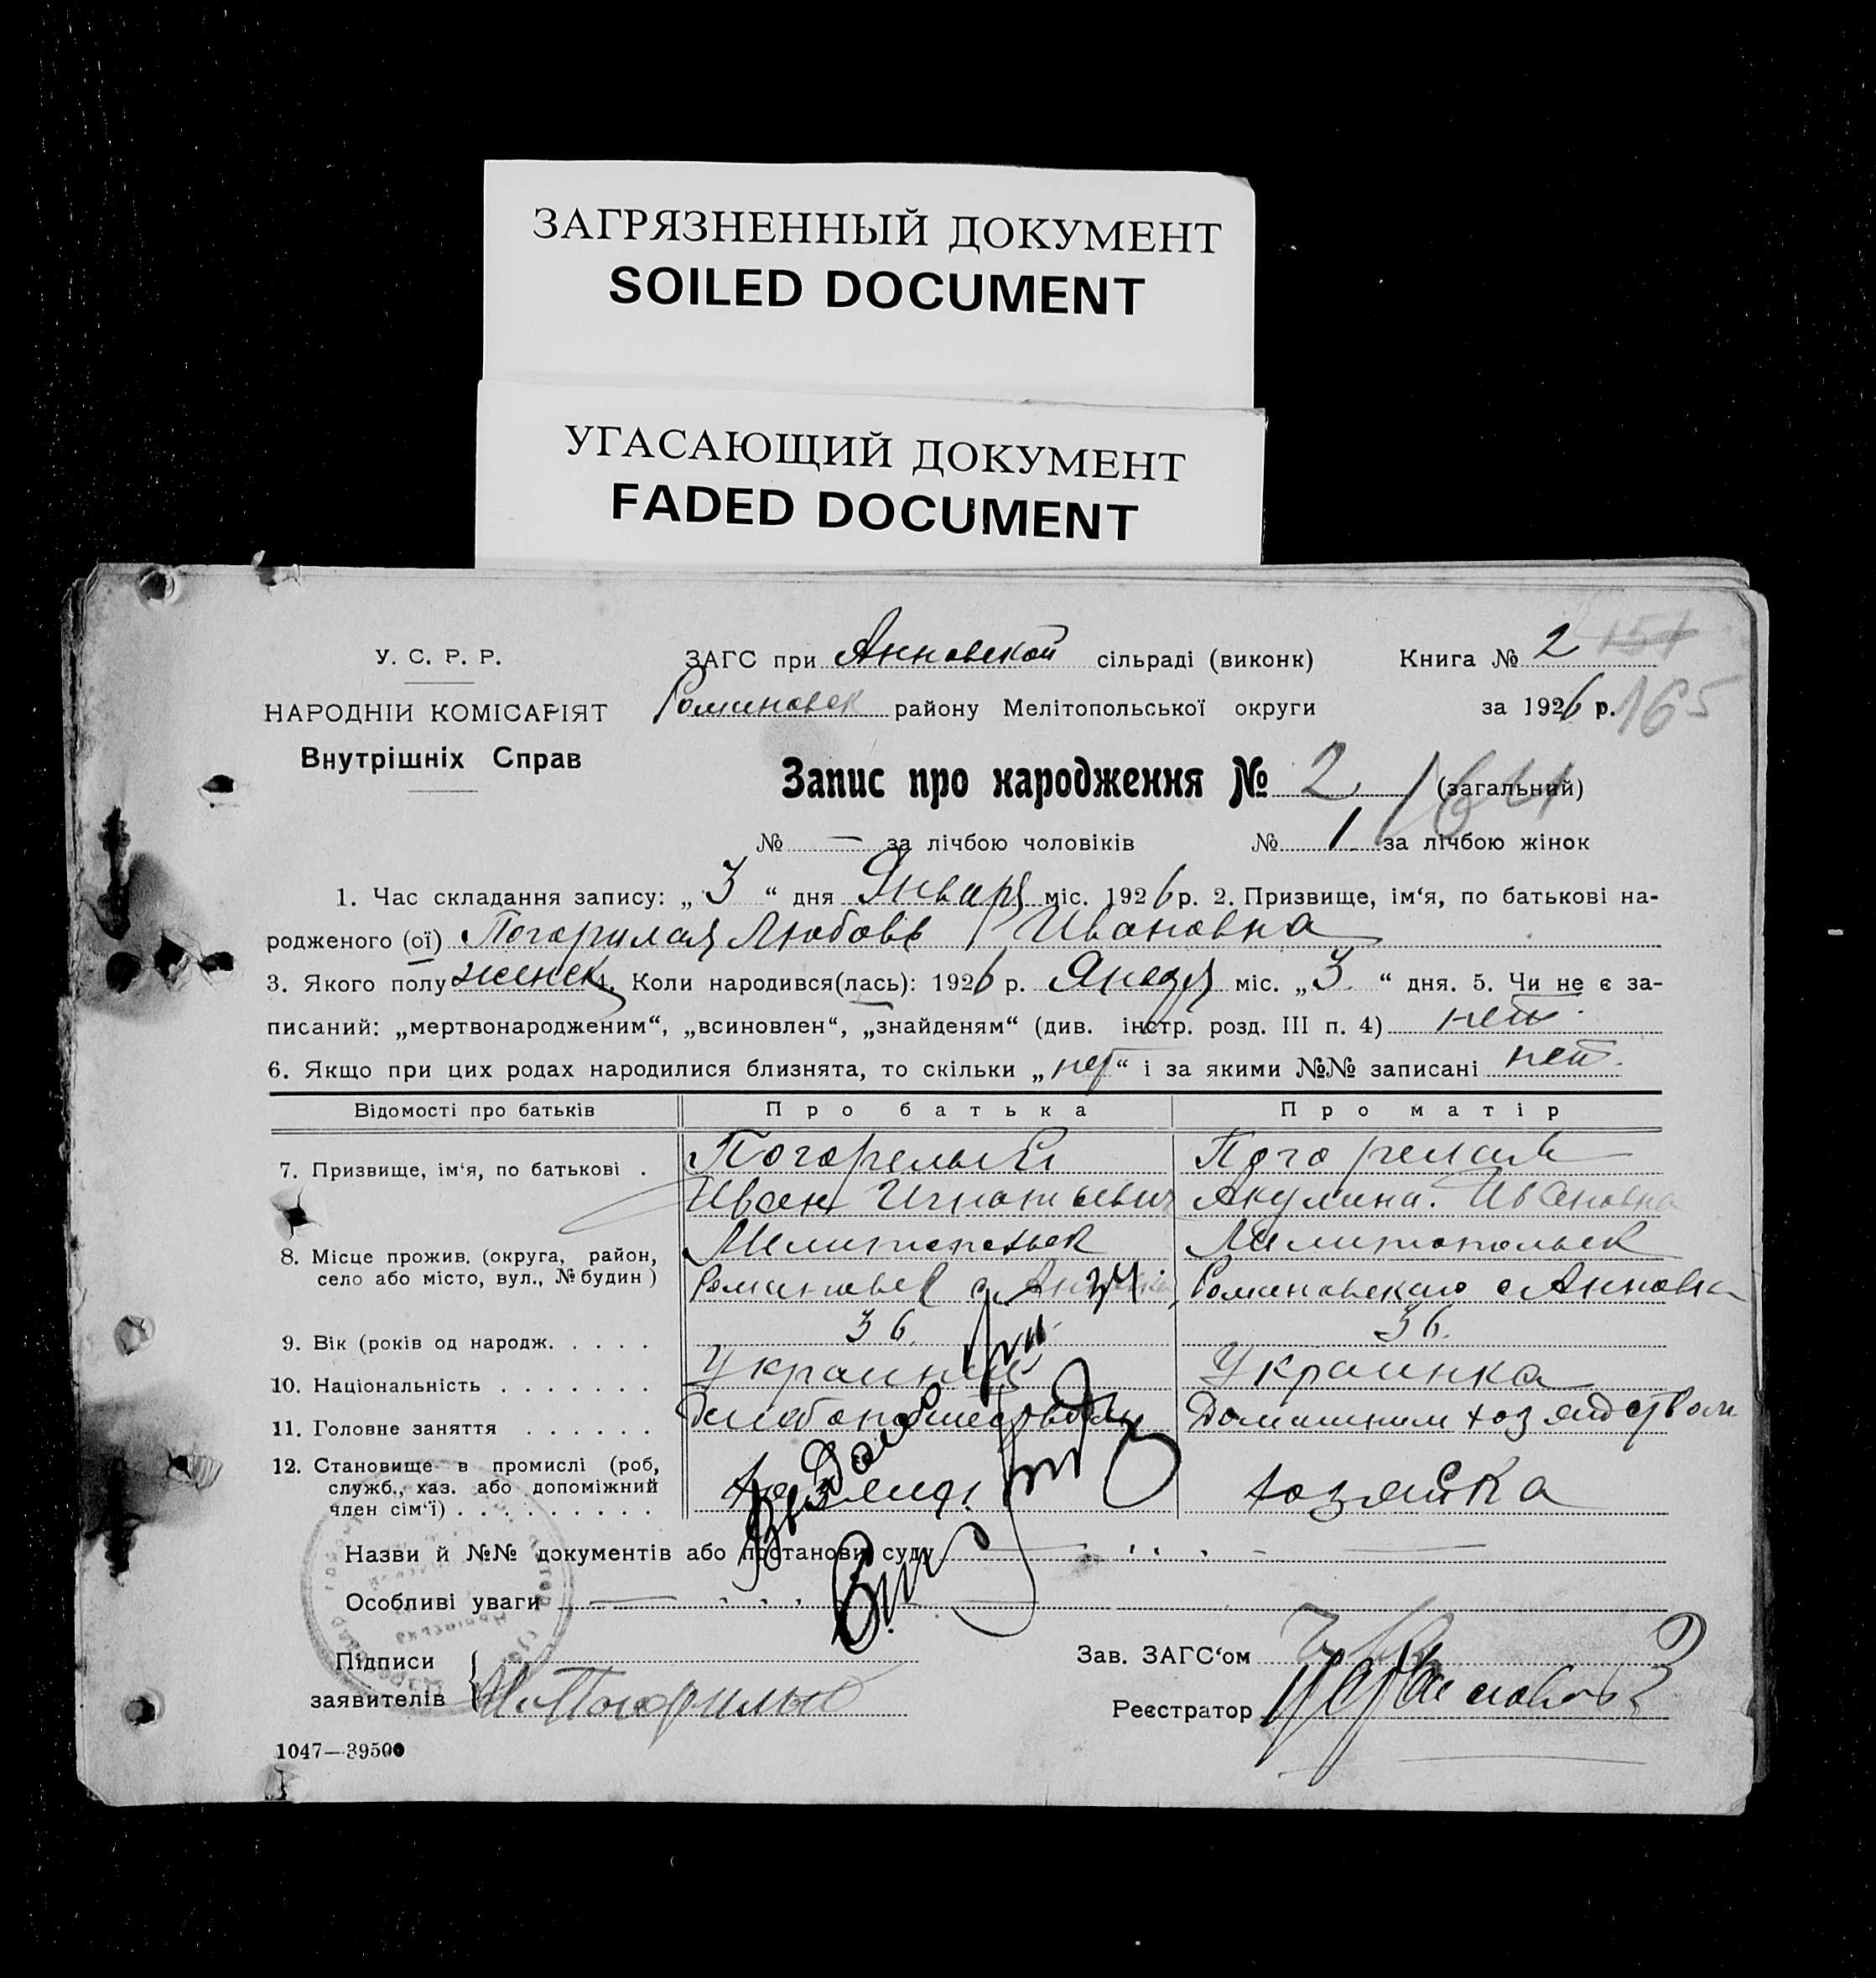 ЗАГРЯЗНЕННЫЙ ДОКУМЕНТ
SOILED DOCUMENT
УГАСАЮЩИЙ ДОКУМЕНТ
FADED DOCUMENT
У. С. Р. Р.
НАРОДНІЙ КОМІСАРІЯТ
Внутрішніх Справ
ЗАГС при Анновской сільраді (виконк) Книга № 2 151
Романовск району Мелітопольської округи за 1926 р. 165
Запис про народження № 2 164 (загальний)
№ — за лічбою чоловіків № 1 за лічбою жінок
1. Час складання запису: „ 3 “ дня Января міс. 1926 р. 2. Призвище, ім‘я, по батькові на-
родженого (ої) Погорилая Любовь Ивановна
3. Якого полу женск 4. Коли народився(лась): 1926 р. Января міс. „ 3 “ дня. 5. Чи не є за-
писаний: „мертвонародженим“, „всиновлен“, „знайденям“ (див. інстр. розд. III п. 4) нет
6. Якщо при цих родах народилися близнята, то скільки „ нет “ і за якими №№ записані нет
Відомості про батьків Про батька Про матір
7. Призвище, ім‘я, по батькові . Погорелый Погорелая
Иван Игнатьевич Акулина Ивановна
8. Місце прожив. (округа, район, Мелитопольск Мелитопольск
село або місто, вул., № будин ) Романовск с Романовскаго с Анновка
9. Вік (років од народж. . . . . 36. 36.
10. Національність . . . . . . . Украинец Украинка
11. Головне заняття . . . . . . Хлебопашество Домашним хозяйством
12. Становище в промислі (роб,
служб., хаз. або допоміжний хозяин хозяйка
член сім‘ї) . . . . . . . . .
Назви й №№ документів або постанови суду —
Особливі уваги —
Підписи Зав. ЗАГС‘ом
заявителів И. Погорилый Реєстратор
1047—39500